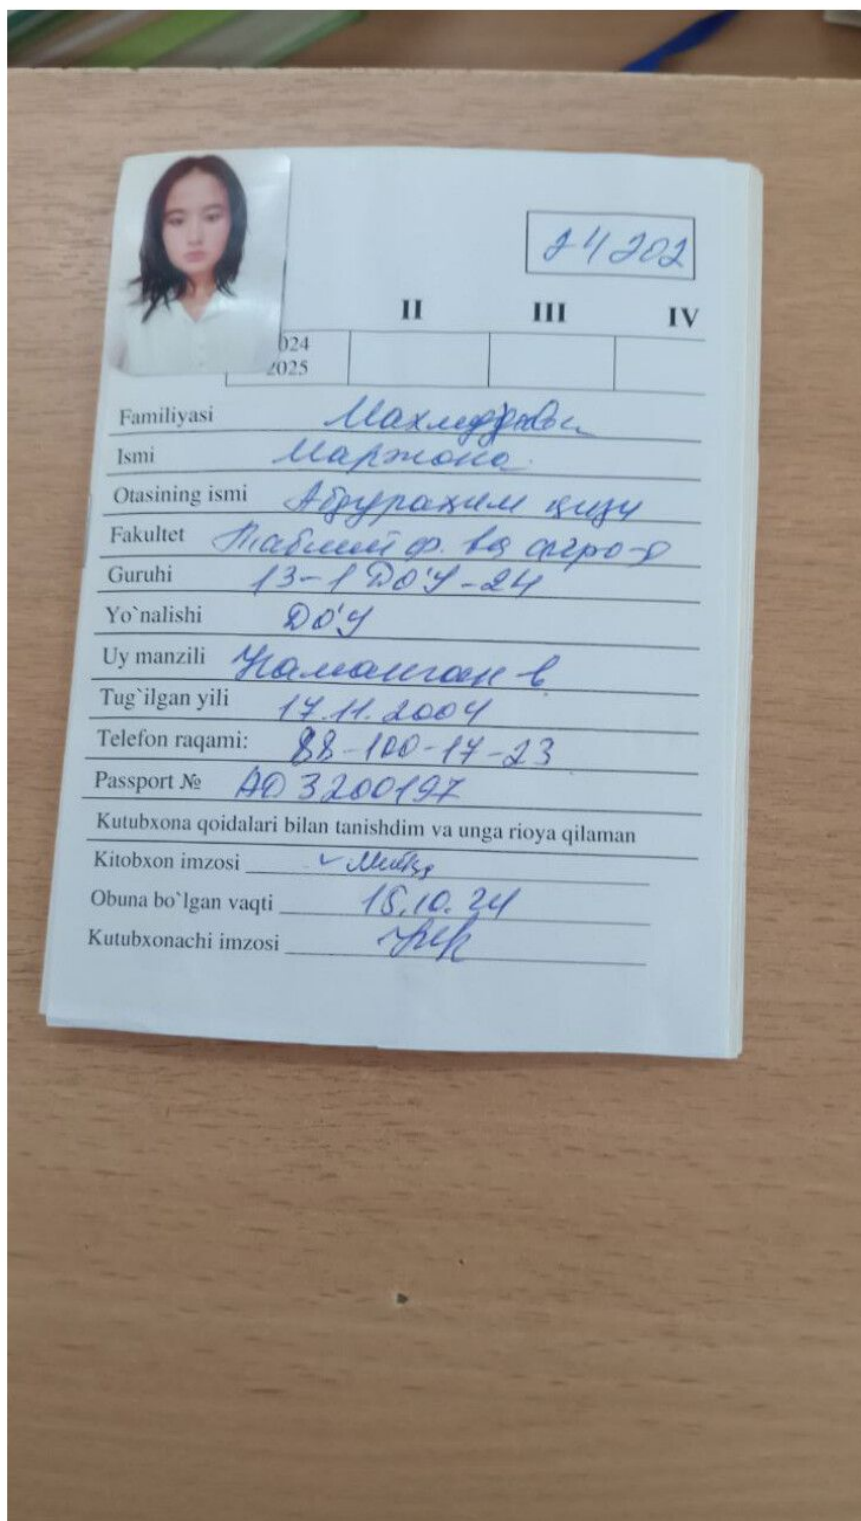 24202
II III IV
024
2025
Familiyasi
Ismi Маржона
Otasining ismi Абдурахим қизи
Fakultet Табиий ф. ва агро-
Guruhi 13-1 DO'У-24
Yo`nalishi DO'У
Uy manzili Наманган в
Tug`ilgan yili 17.11.2004
Telefon raqami: 88-100-17-23
Passport № AD 3200197
Kutubxona qoidalari bilan tanishdim va unga rioya qilaman
Kitobxon imzosi
Obuna bo`lgan vaqti .10.24
Kutubxonachi imzosi